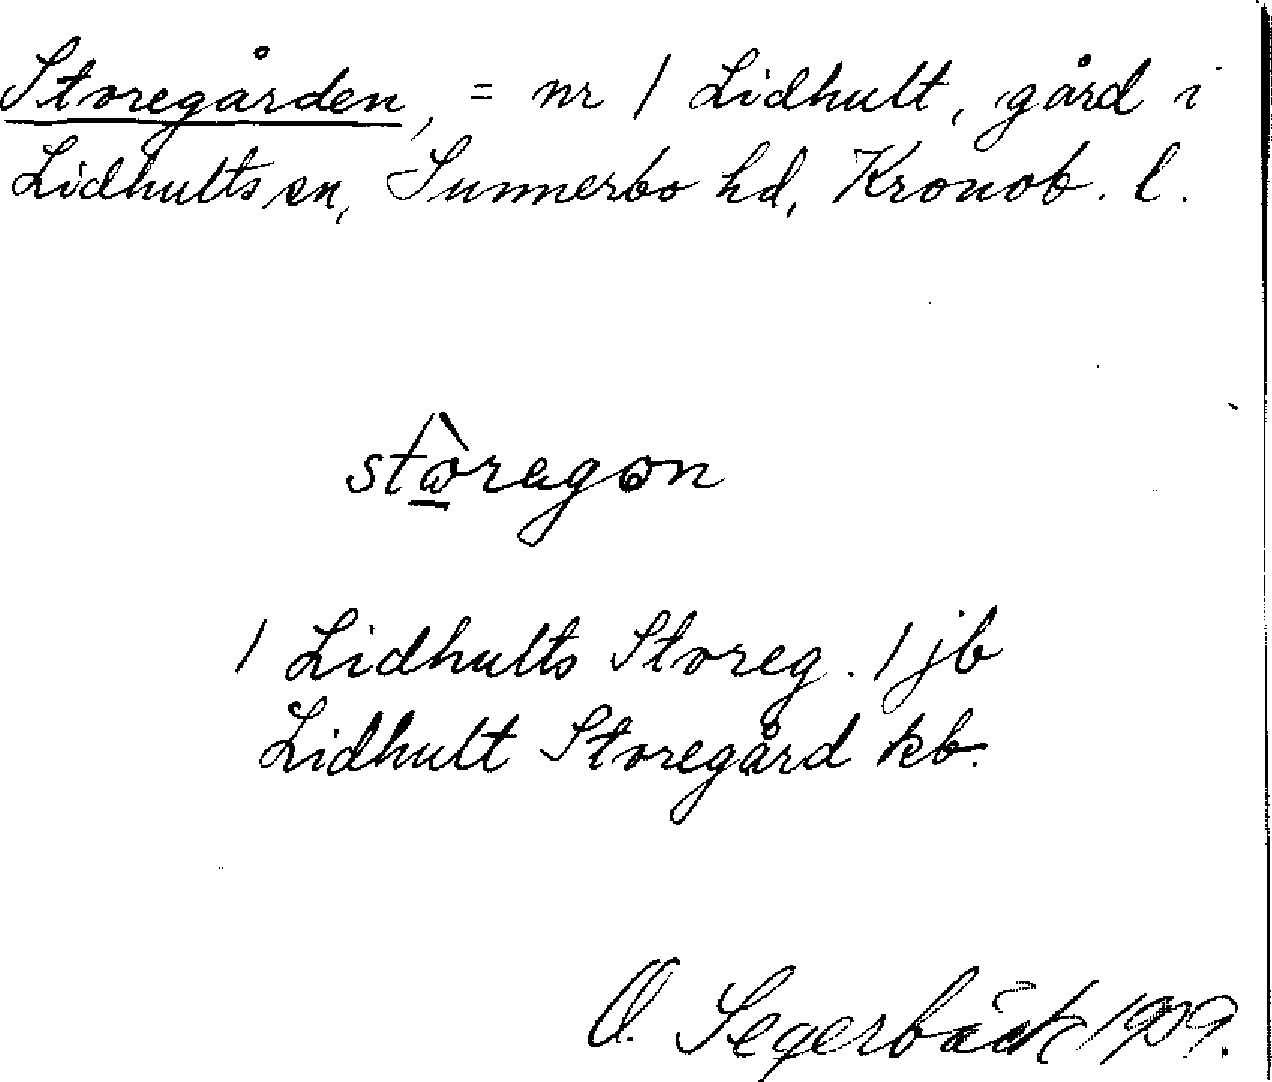 Storegården, = nr 1 Lidhult, gård i
Lidhults sn, Sunnerbo hd, Kronob. l.
1 Lidhults Storeg. 1 jb
Lidhult Storegård kb.
O. Segerbäck 1909.